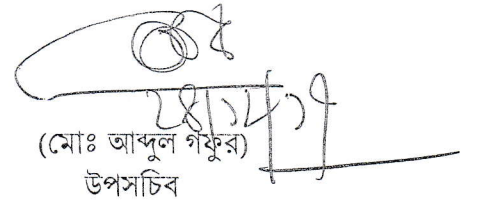 (মোঃ আব্দুল গফুর)
উপসচিব